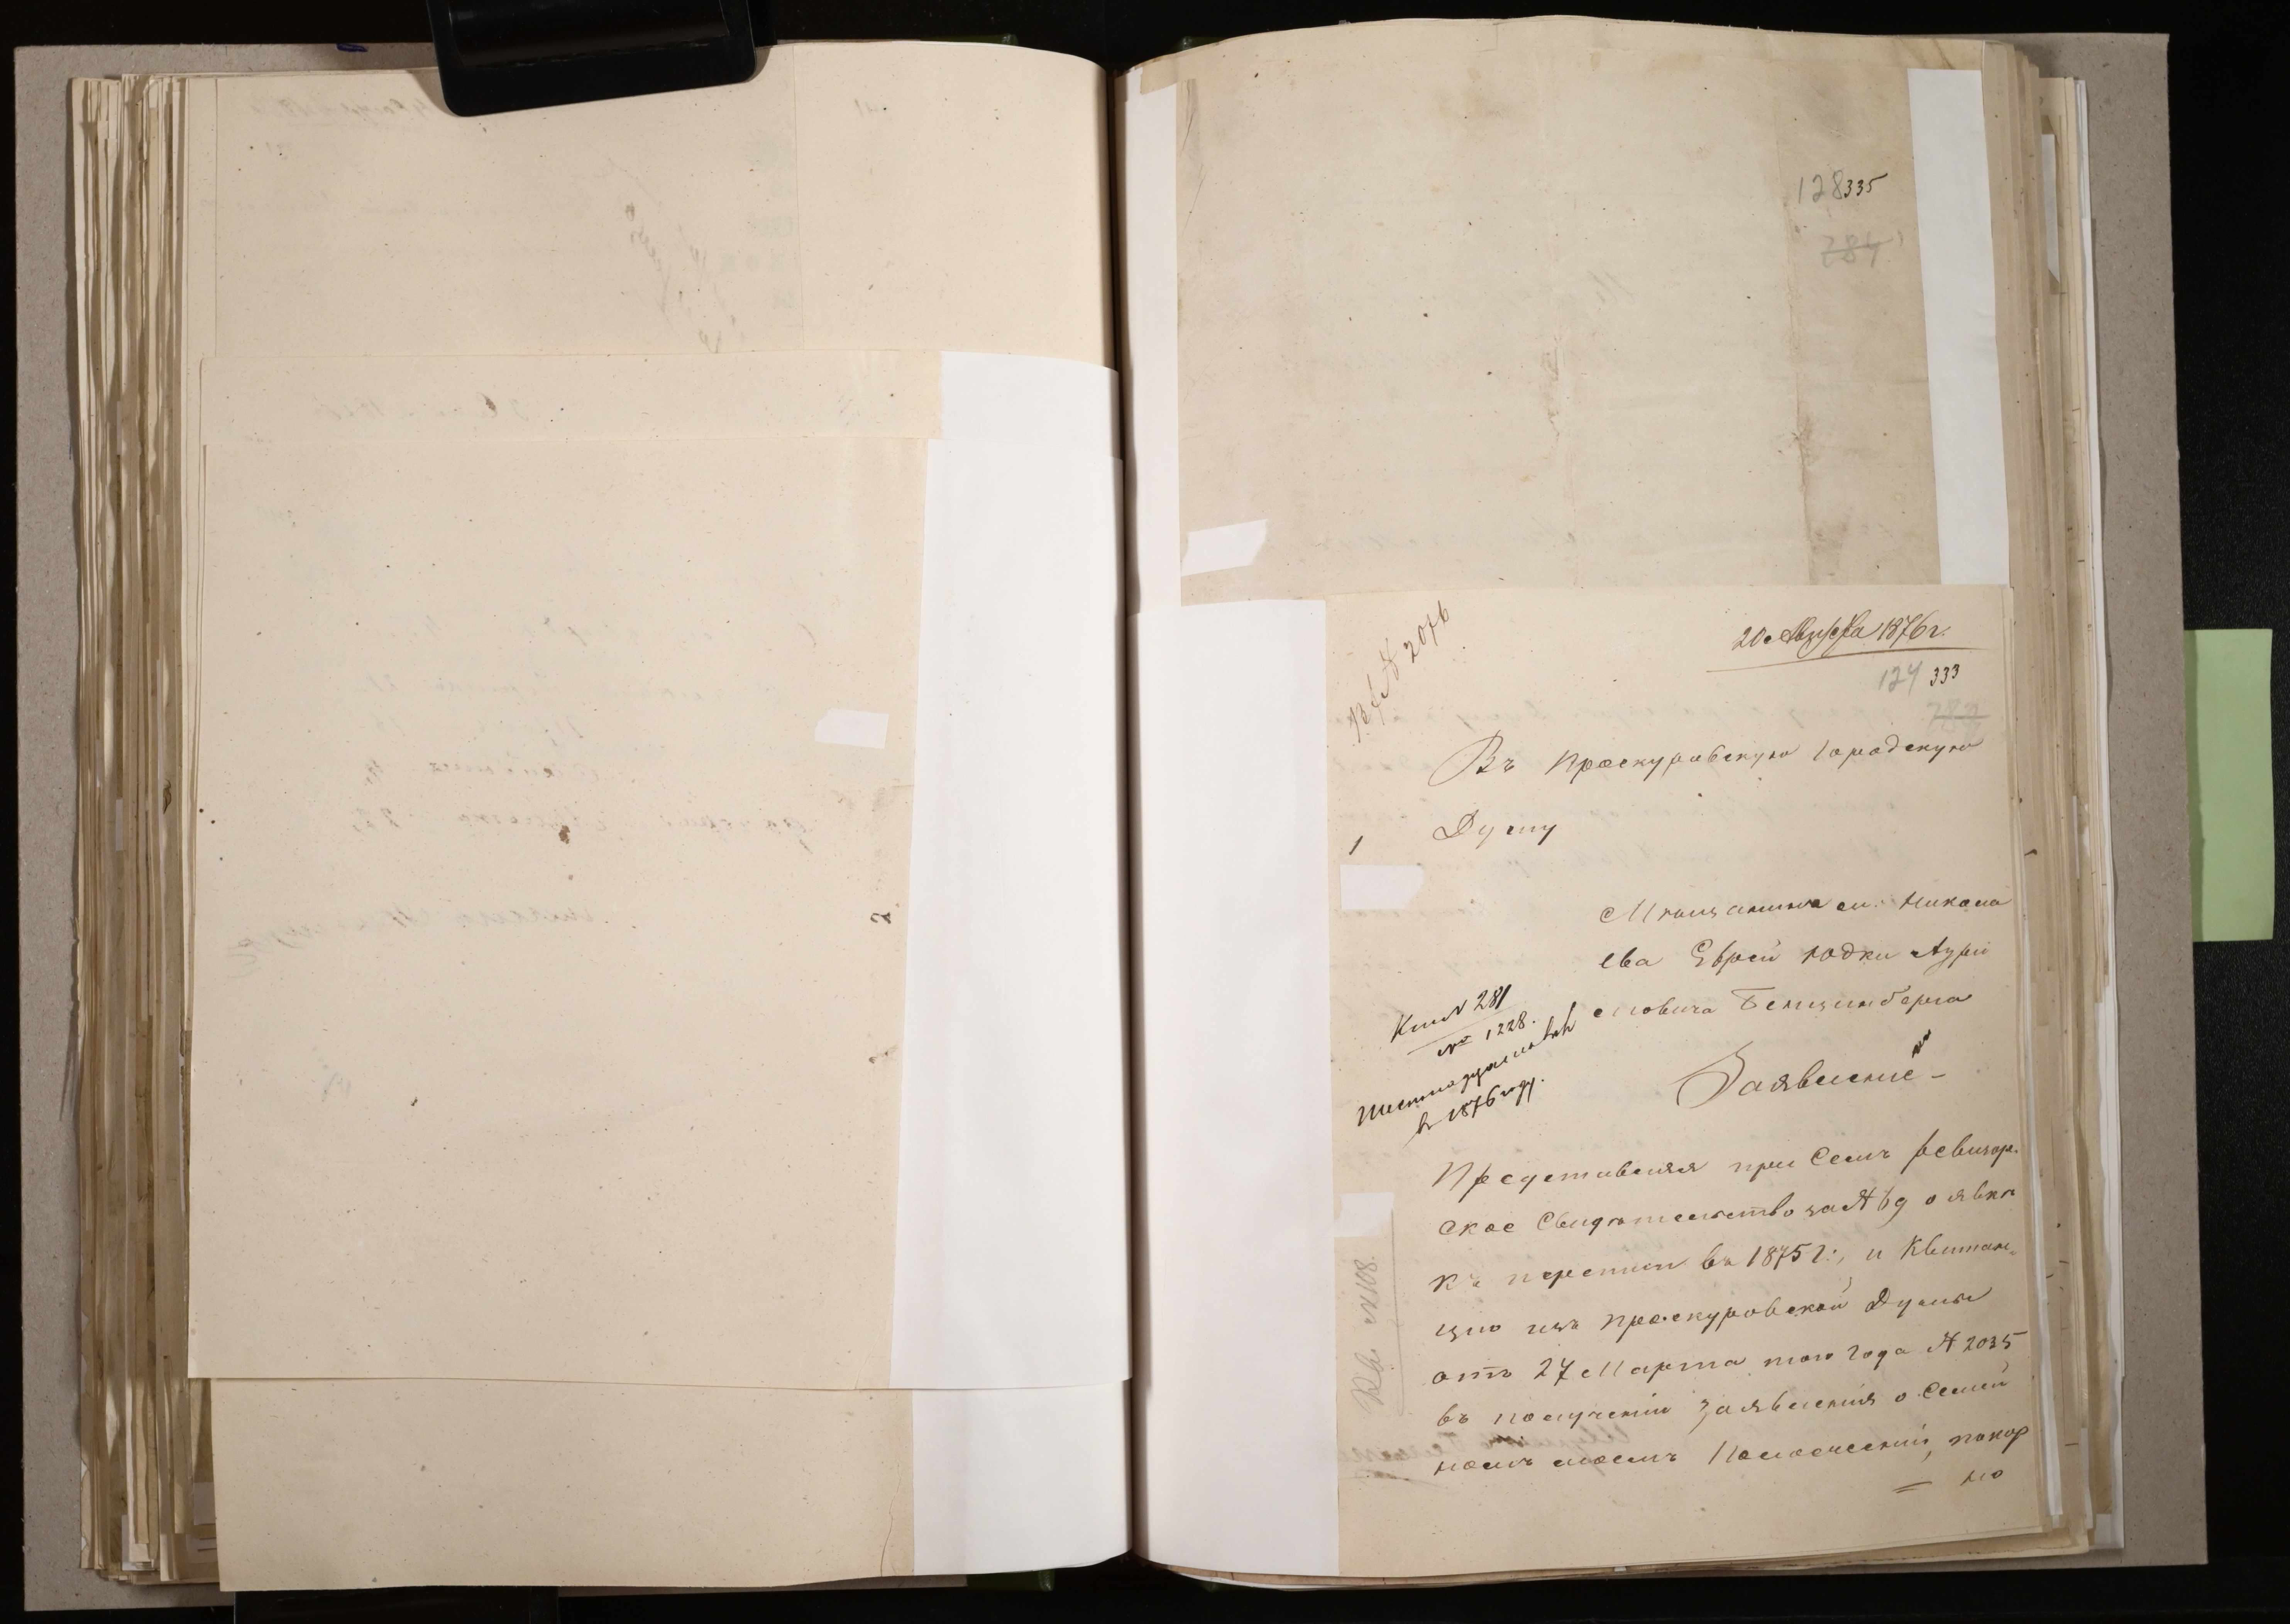 128 335
284
20 Августа 1876 г.
124 333
№ 2076
Въ Проскуровскую Городскую
Думу
1
Мѣщанина м. Никола
ева Еврей Юдки
Бенцинберга
№ 281
№ 1228.
въ 1876 году.
Заявленіе
Представляя при семъ ревизор
ское Свидѣтельство за № 69 о явкѣ
къ переписи въ 1875 г:, и Квитан
цію изъ Проскуровской Думы
отъ 27 Марта того года № 2035
въ полученіи заявленія о Семей
номъ моемъ Положеніи, покор
= но
№ 108.
2